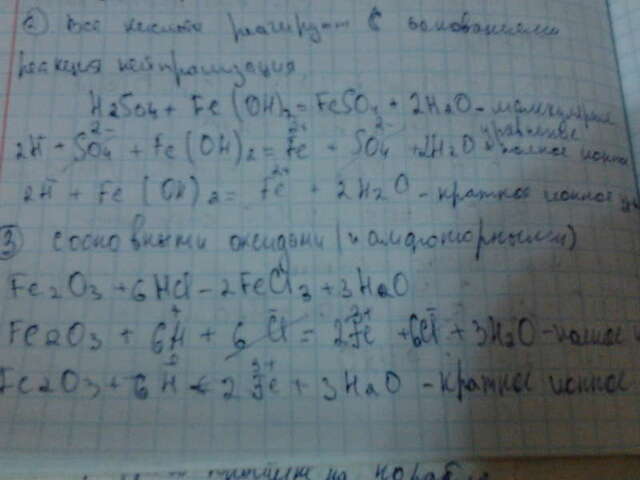 2) Все кислоты реагируют с основаниями
реакция нейтрализация
H2SO4 + Fe(OH)2 = FeSO4 + 2H2O - молекулярное
уравнение
2H + SO4 2- + Fe(OH)2 = Fe 2+ + SO4 2- + 2H2O полное ионное
2H + Fe(OH)2 = Fe 2+ + 2H2O - краткое ионное
3 с основными оксидами (и амфотерными)
Fe2O3 + 6HCl - 2FeCl3 + 3H2O
Fe2O3 + 6H+ + 6Cl- = 2Fe 3+ + 6Cl- + 3H2O - полное
Fe2O3 + 6H+ = 2Fe 3+ + 3H2O - краткое ионное